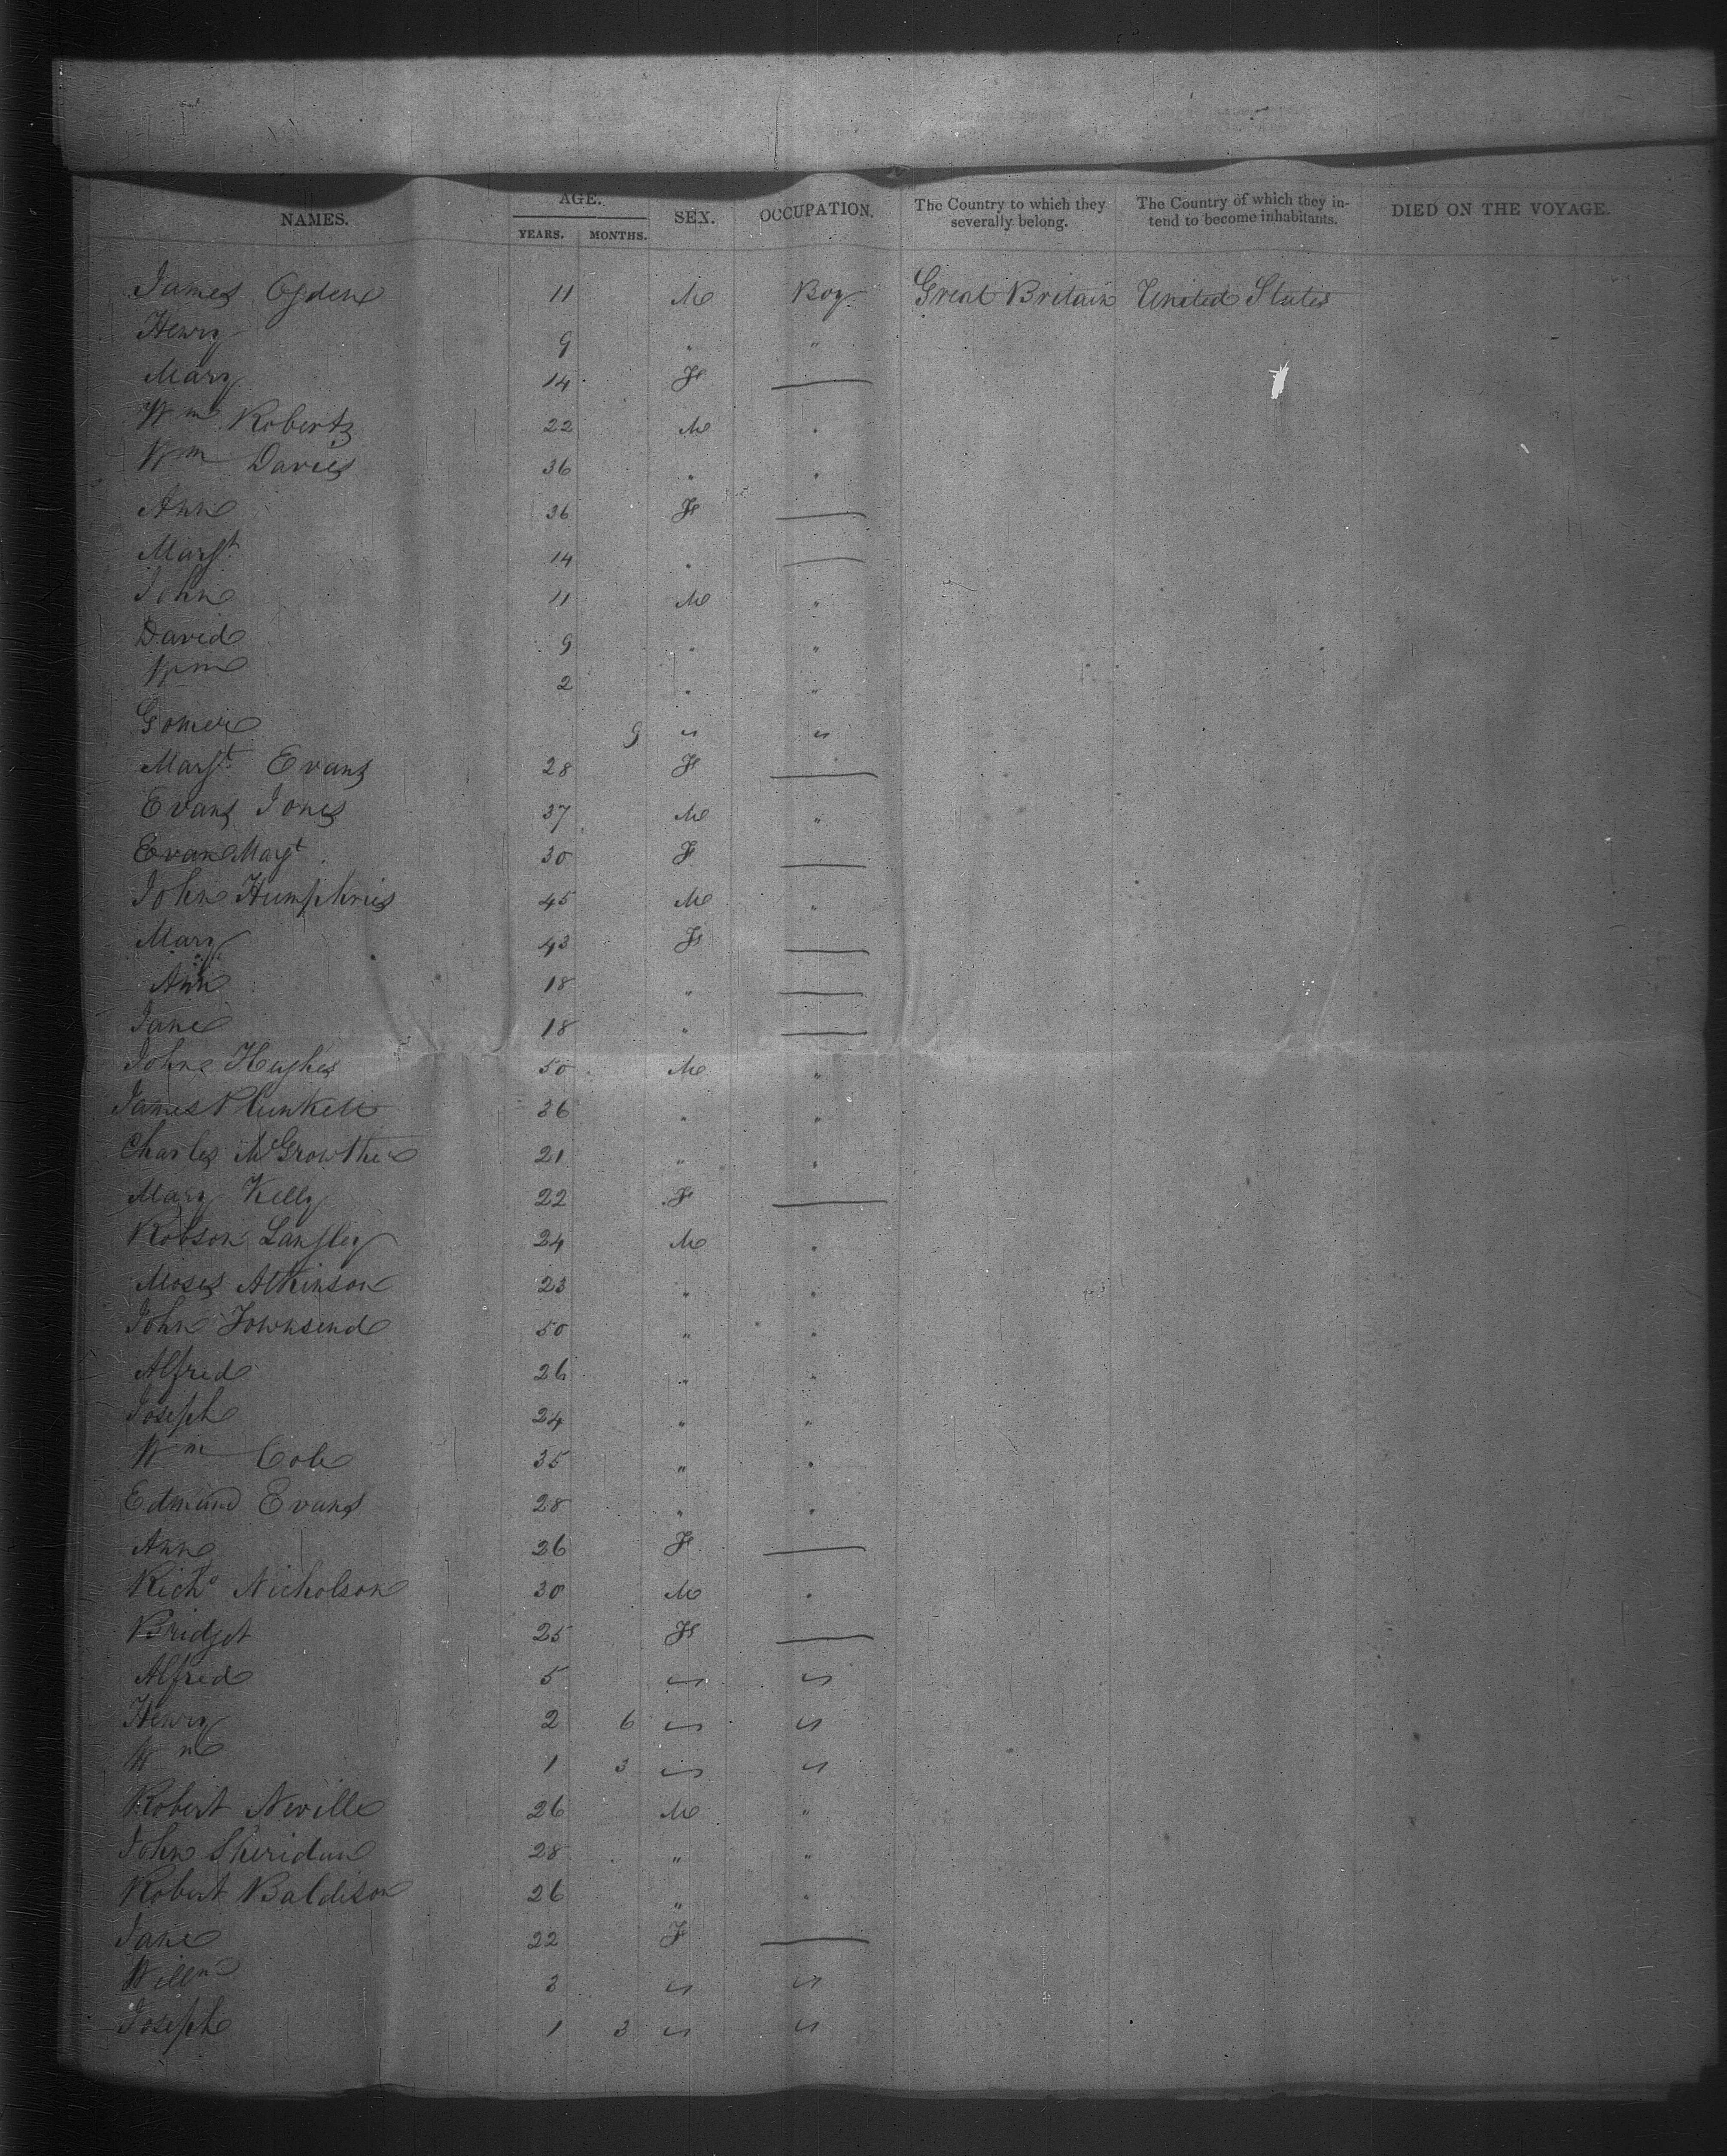 NAMES. AGE. YEARS. MONTHS. SEX. OCCUPATION. The Country to which they severally belong. The Country of which they intend to become inhabitants. DIED ON THE VOYAGE.
James Ogden 11 M Boy Great Britain United States
Henry 9 " "
Mary 14 F —
Wm Roberts 22 M "
Wm Davies 36 " "
Ann 36 F —
Margt 14 " —
John 11 M "
David 9 " "
Wm 2 " "
Gomer 9 " "
Margt Evans 28 F —
Evans Jones 37 M "
Evan Magt 30 F —
John Humphries 45 M "
Mary 43 F —
Ann 18 " —
Jane 18 " —
John Hughes 50 M "
James Plunkett 36 " "
Charles McGrowther 21 " "
Mary Kelly 22 F —
Robson Langley 24 M "
Moses Atkinson 23 " "
John Townsend 50 " "
Alfred 26 " "
Joseph 24 " "
Wm Cole 35 " "
Edmund Evans 28 " "
Ann 26 F —
Richd Nicholson 30 M "
Bridget 25 F —
Alfred 5 " "
Henry 2 6 " "
Wm 1 3 " "
Robert Neville 26 M "
John Sheridan 28 " "
Robert Baldison 26 " "
Jane 22 F —
Willm 3 " "
Joseph 1 3 " "